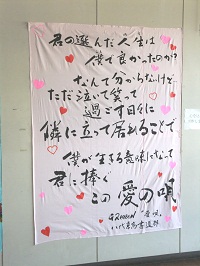 君の選んだ人生は
僕で良かったのか?
なんて分からないけど、
ただ泣いて笑って
過ごす日々に
隣に立って居れることで
僕が生きる意味になって
君に捧ぐ
この愛の唄
GReeeeN 愛唄
八代高校書道部